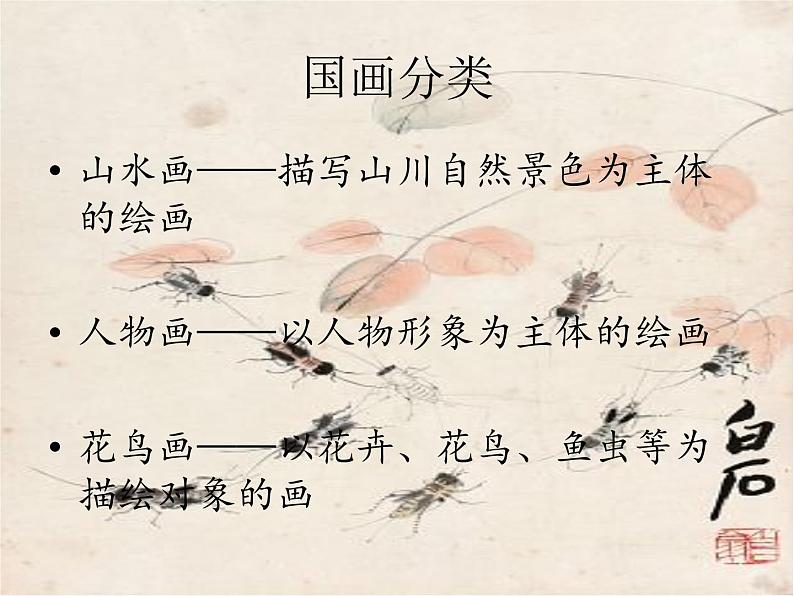 国画分类
• 山水画——描写山川自然景色为主体
的绘画
• 人物画——以人物形象为主体的绘画
• 花鸟画——以花卉、花鸟、鱼虫等为
描绘对象的画
白石